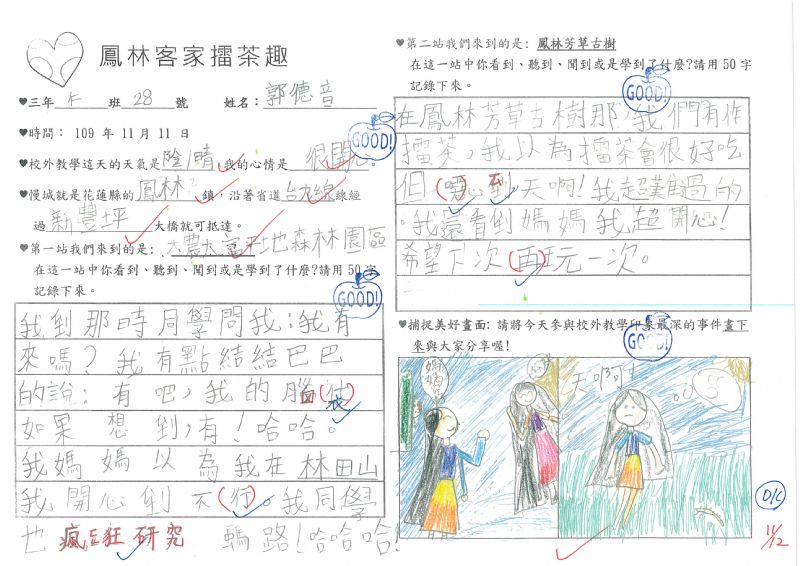 鳳林客家擂茶趣
♥三年 班 28 號 姓名: 郭德音
♥時間: 109 年 11 月 11 日
GOOD!
♥校外教學這天的天氣是 陰/晴,我的心情是 很開心。
♥慢城就是花蓮縣的 鳳林 鎮,沿著省道 台九線 線經
過 新豐坪 大橋就可抵達。
♥第一站我們來到的是: 大農大富平地森林園區
在這一站中你看到、聽到、聞到或是學到了什麼?請用 50 字
記錄下來。
GOOD!
我到那時同學問我:我有
來嗎?我有點結結巴巴
的說:有吧,我的腦
如果想到,有!哈哈。
我媽媽以為我在林田山
我開心到不(行)。我同學
也 瘋狂 研究 螞路!哈哈哈!
♥第二站我們來到的是: 鳳林芳草古樹
在這一站中你看到、聽到、聞到或是學到了什麼?請用 50 字
記錄下來。
GOOD!
在鳳林芳草古樹那,我們有作
擂茶,我以為擂茶會很好吃
但 天啊!我超難過的
。我還看到媽媽我超開心!
希望下次(再)玩一次。
♥捕捉美好畫面: 請將今天參與校外教學印象最深的事件畫下
來與大家分享喔!
GOOD!
媽媽
天啊!
11/12